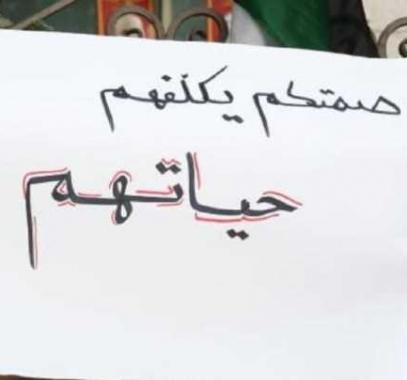 صمتكم يكلّفهم
حياتهم